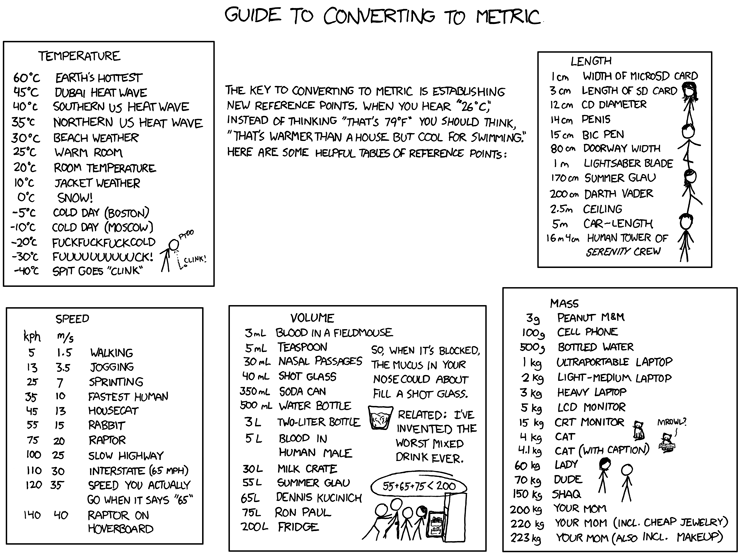 GUIDE TO CONVERTING TO METRIC
TEMPERATURE
60°C EARTH'S HOTTEST
45°C DUBAI HEAT WAVE
40°C SOUTHERN US HEAT WAVE
35°C NORTHERN US HEAT WAVE
30°C BEACH WEATHER
25°C WARM ROOM
20°C ROOM TEMPERATURE
10°C JACKET WEATHER
0°C SNOW!
-5°C COLD DAY (BOSTON)
-10°C COLD DAY (MOSCOW)
-20°C FUCKFUCKFUCKCOLD
-30°C FUUUUUUUUUUCK!
-40°C SPIT GOES "CLINK"
PTOO
CLINK!
THE KEY TO CONVERTING TO METRIC IS ESTABLISHING
NEW REFERENCE POINTS. WHEN YOU HEAR "26°C,"
INSTEAD OF THINKING "THAT'S 79°F" YOU SHOULD THINK,
"THAT'S WARMER THAN A HOUSE BUT COOL FOR SWIMMING."
HERE ARE SOME HELPFUL TABLES OF REFERENCE POINTS:
LENGTH
1 cm WIDTH OF MICROSD CARD
3 cm LENGTH OF SD CARD
12 cm CD DIAMETER
14 cm PENIS
15 cm BIC PEN
80 cm DOORWAY WIDTH
1 m LIGHTSABER BLADE
170 cm SUMMER GLAU
200 cm DARTH VADER
2.5 m CEILING
5 m CAR-LENGTH
16 m 4 cm HUMAN TOWER OF
SERENITY CREW
SPEED
kph m/s
5 1.5 WALKING
13 3.5 JOGGING
25 7 SPRINTING
35 10 FASTEST HUMAN
45 13 HOUSECAT
55 15 RABBIT
75 20 RAPTOR
100 25 SLOW HIGHWAY
110 30 INTERSTATE (65 MPH)
120 35 SPEED YOU ACTUALLY
GO WHEN IT SAYS "65"
140 40 RAPTOR ON
HOVERBOARD
VOLUME
3 mL BLOOD IN A FIELDMOUSE
5 mL TEASPOON
30 mL NASAL PASSAGES
40 mL SHOT GLASS
350 mL SODA CAN
500 mL WATER BOTTLE
3 L TWO-LITER BOTTLE
5 L BLOOD IN
HUMAN MALE
30L MILK CRATE
55L SUMMER GLAU
65L DENNIS KUCINICH
75L RON PAUL
200L FRIDGE
SO, WHEN IT'S BLOCKED,
THE MUCUS IN YOUR
NOSE COULD ABOUT
FILL A SHOT GLASS.
RELATED: I'VE
INVENTED THE
WORST MIXED
DRINK EVER.
55+65+75<200
MASS
3g PEANUT M&M
100g CELL PHONE
500g BOTTLED WATER
1 kg ULTRAPORTABLE LAPTOP
2 kg LIGHT-MEDIUM LAPTOP
3 kg HEAVY LAPTOP
5 kg LCD MONITOR
15 kg CRT MONITOR
4 kg CAT
4.1 kg CAT (WITH CAPTION)
60 kg LADY
70 kg DUDE
150 kg SHAQ
200 kg YOUR MOM
220 kg YOUR MOM (INCL. CHEAP JEWELRY)
223 kg YOUR MOM (ALSO INCL. MAKEUP)
MROWL?